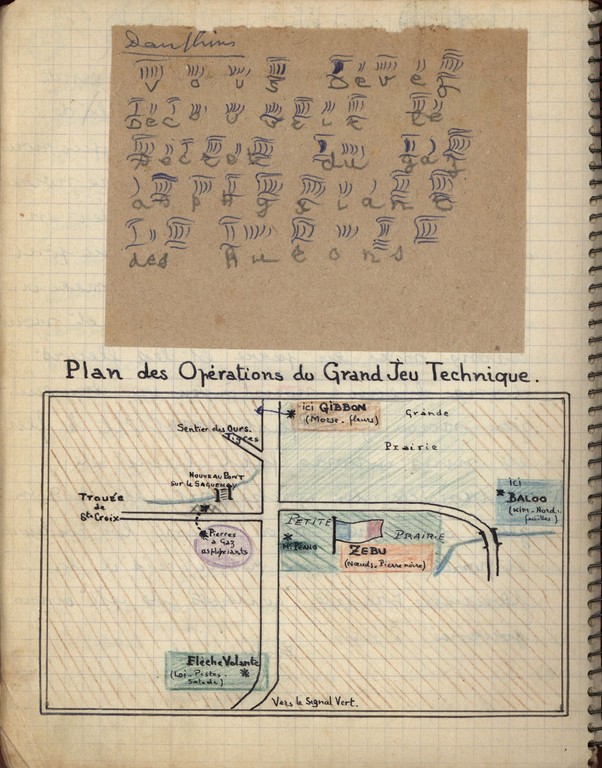 Dauphins
Vous Devez
Decouvrir le
secret du gaz
aspHyxiant
des Hurons
Plan des Opérations du Grand Jeu Technique.
ici GIBBON
(Morse. fleurs)
Grande
Prairie
Sentier des Ours.
Tigres
NOUVEAU PONT
sur le SAGUENAY
Trouée
de
Ste Croix
Pierres
à Gaz
asphyxiants
ici
BALOO
(Kim. Nord.
feuilles)
PETITE
PRAIRIE
Mt BLANC
ZEBU
(Nœuds. Pierre noire)
Flèche Volante
(Loi. Pistes.
Salade)
Vers le Signal Vert.